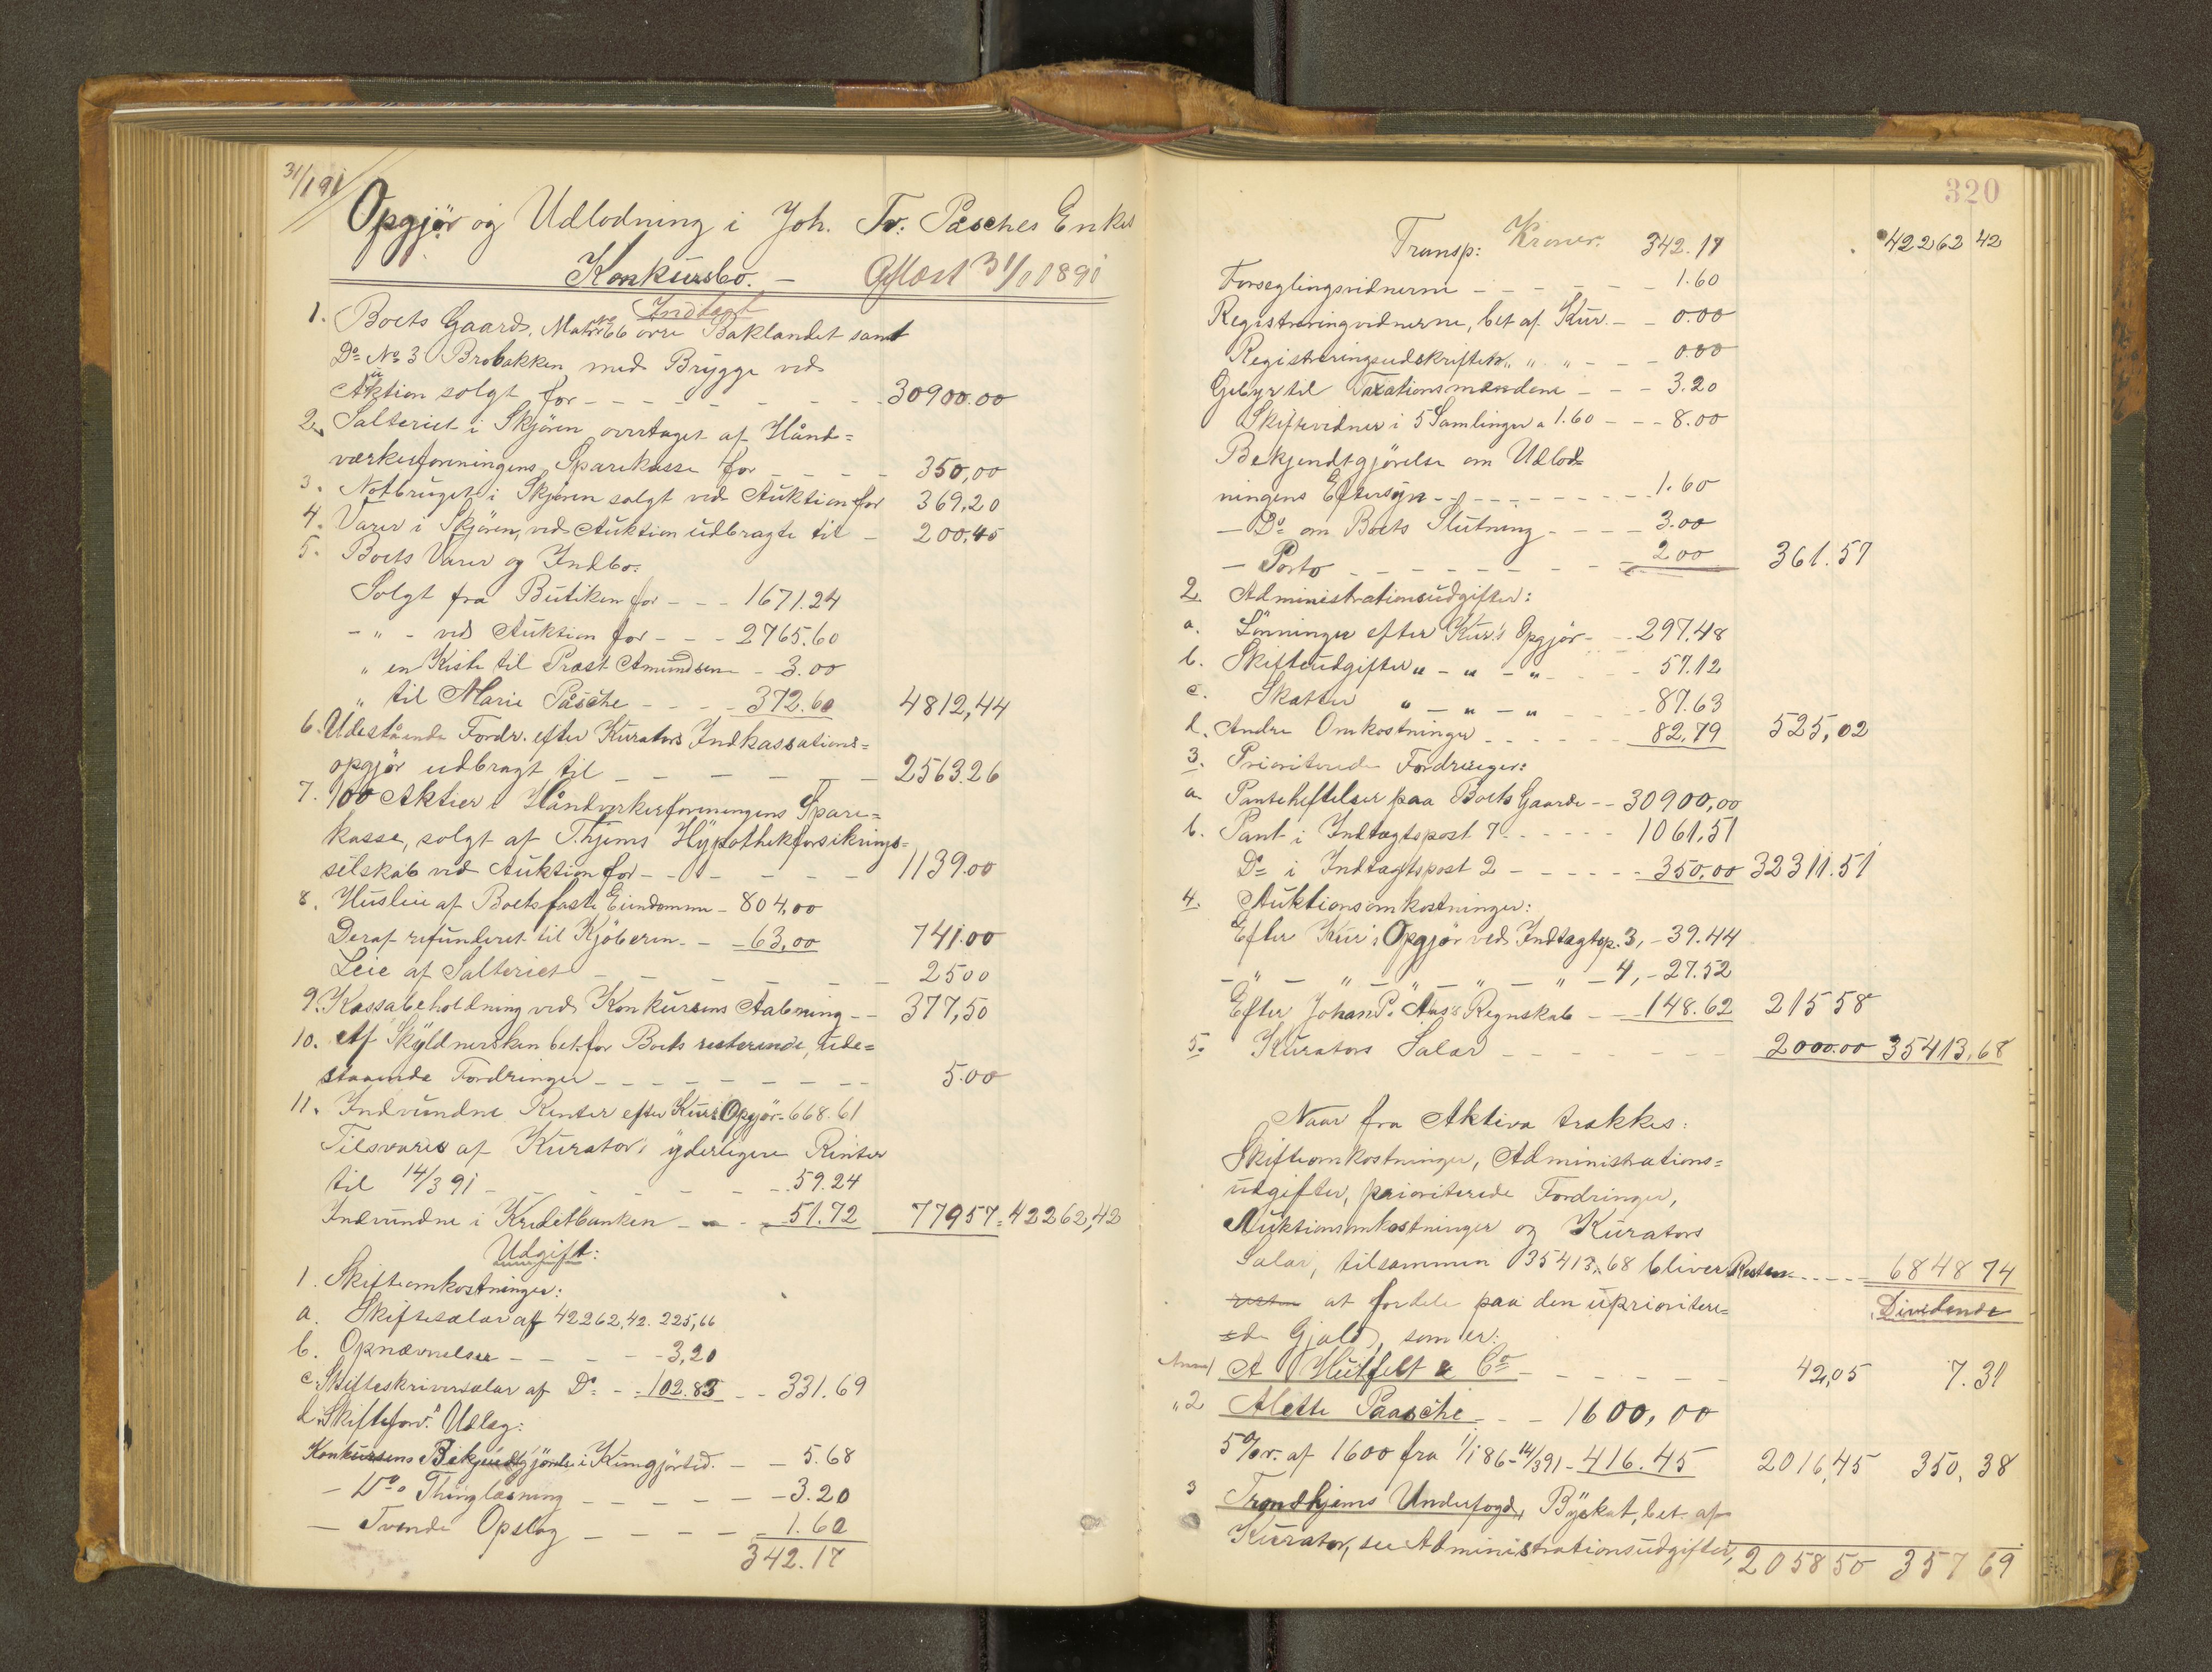 31/1 91
Opgjör og Udlodning i Joh. Fr. Pasches Enkes
Konkursbo. — 31/1 1891
Indtægt
1. Boets Gaard, Matr No 66 övre Baklandet samt
Do No 3 Brobakken med Brygge ved
Auktion solgt for - - - - - - 30900.00
2. Salteriet i Skjören overtaget af Hånd=
værkerforeningens Sparekasse for - - - - 350,00
3. Notbruget i Skjören solgt ved Auktion for 369,20
4. Varer i Skjören, ved Auktion udbragte til - 200,45
5. Boets Varer og Indbo:
Solgt fra Butiken for - - - 1671.24
- " - ved Auktion for - - - 2765.60
" en Kiste til Præst Amundsen - 3.00
" til Marie Påsche - - - - 372.60 4812,44
6. Udestående Fordr. efter Kurators Indkassations=
opgjör udbragt til - - - - - - 2563.26
7. 100 Aktier i Håndverkerforeningens Spare=
kasse, solgt af T.hjems Hypothekforsikrings=
selskab ved Auktion for - - - - - - 1139.00
8. Husleie af Boets faste Eiendomme - 804,00
Deraf refunderet til Kjöberen - - 63,00 741.00
Leie af Salteriet - - - - - 25 00
9. Kassabeholdning ved Konkursens Aabning - - 377,50
10. Af Skyldnersken bet. for Boets resterende, ude=
staaende Fordringer - - - - - - - - - 5.00
11. Indvundne Renter efter Kurs Opgjör - 668.61
Tilsvares af Kurator: yderligere Renter
til 14/3 91 - - - - - - 59.24
Indvundne i Kreditbanken - - - 51.72 779 57 = 42262,42
Udgift:
1. Skifteomkostninger:
a. Skiftesalar af 42262,42. 225,66
b. Opnævnelser - - - - - 3,20
c. Skifteskriversalar af Do - - 102.83 - - 331.69
d. Skifteforv.s Udlæg:
Konkursens Bekjendtgjörelse i Kungjörtid. - - 5.68
- Do Thinglæsning - - - - - - 3.20
- Tvende Opslag - - - - - - 1.60
342.17
320
Transp: Kroner. 342.17 42262 42
Forseglingsvidnerne - - - - - - 1.60
Registreringvidnerne, bet af Kur. - - 0.00
Registreringsudskriften " " - - - 0.00
Gebyr til Taxationsmændene - - - 3.20
Skiftevidner i 5 Samlinger a 1.60 - - - 8.00
Bekjendtgjörelse om Udlod=
ningens Eftersyn - - - - - - - - - 1.60
- Do om Boets Slutning - - - - 3.00
- Porto - - - - - - - - 2 00 361.57
2. Administrationsudgifter:
a. Lönninger efter Kur's Opgjör - - 297.48
b. Skifteudgifter " - " - " - - - 57.12
c. Skatter " - " - " - - - 87.63
d. Andre Omkostninger - - - - - - 82,79 525,02
3. Prioriterede Fordringer:
a. Panteheftelser paa Boets Gaarde - - 30900,00
b. Pant i Indtægtspost 7 - - - - - - 1061,51
Do i Indtægtspost 2 - - - - - - 350.00 32311.51
4. Auktionsomkostninger:
Efter Kur's Opgjör ved Indtægtsp. 3, - 39.44
- " - " - " - " - " - 4, - 27.52
Efter Johan P. Aas's Regnskab - - - 148.62 215 58
5. Kurators Salær - - - - - - - 2000.00 35413,68
Naar fra Aktiva trækkes:
Skifteomkostninger, Administrations=
udgifter, prioriterede Fordringer,
Auktionsomkostninger og Kurators
Salær, tilsammen 35413,68 bliver Resten - - - - - 6848 74
at fordele paa den uprioritere= Dividende
de Gjæld, som er:
Anm 1 A Huitfelt & Co - - - - - - 42,05 7.31
" 2 Alette Paasche - - - 1600,00
5 % r. af 1600 fra 1/1 86 - 14/3 91 - 416.45 2016,45 350,38
3 Trondhjems Underfoged, Byskat, bet. af
Kurator, se Administrationsudgifter, 2058 50 357 69